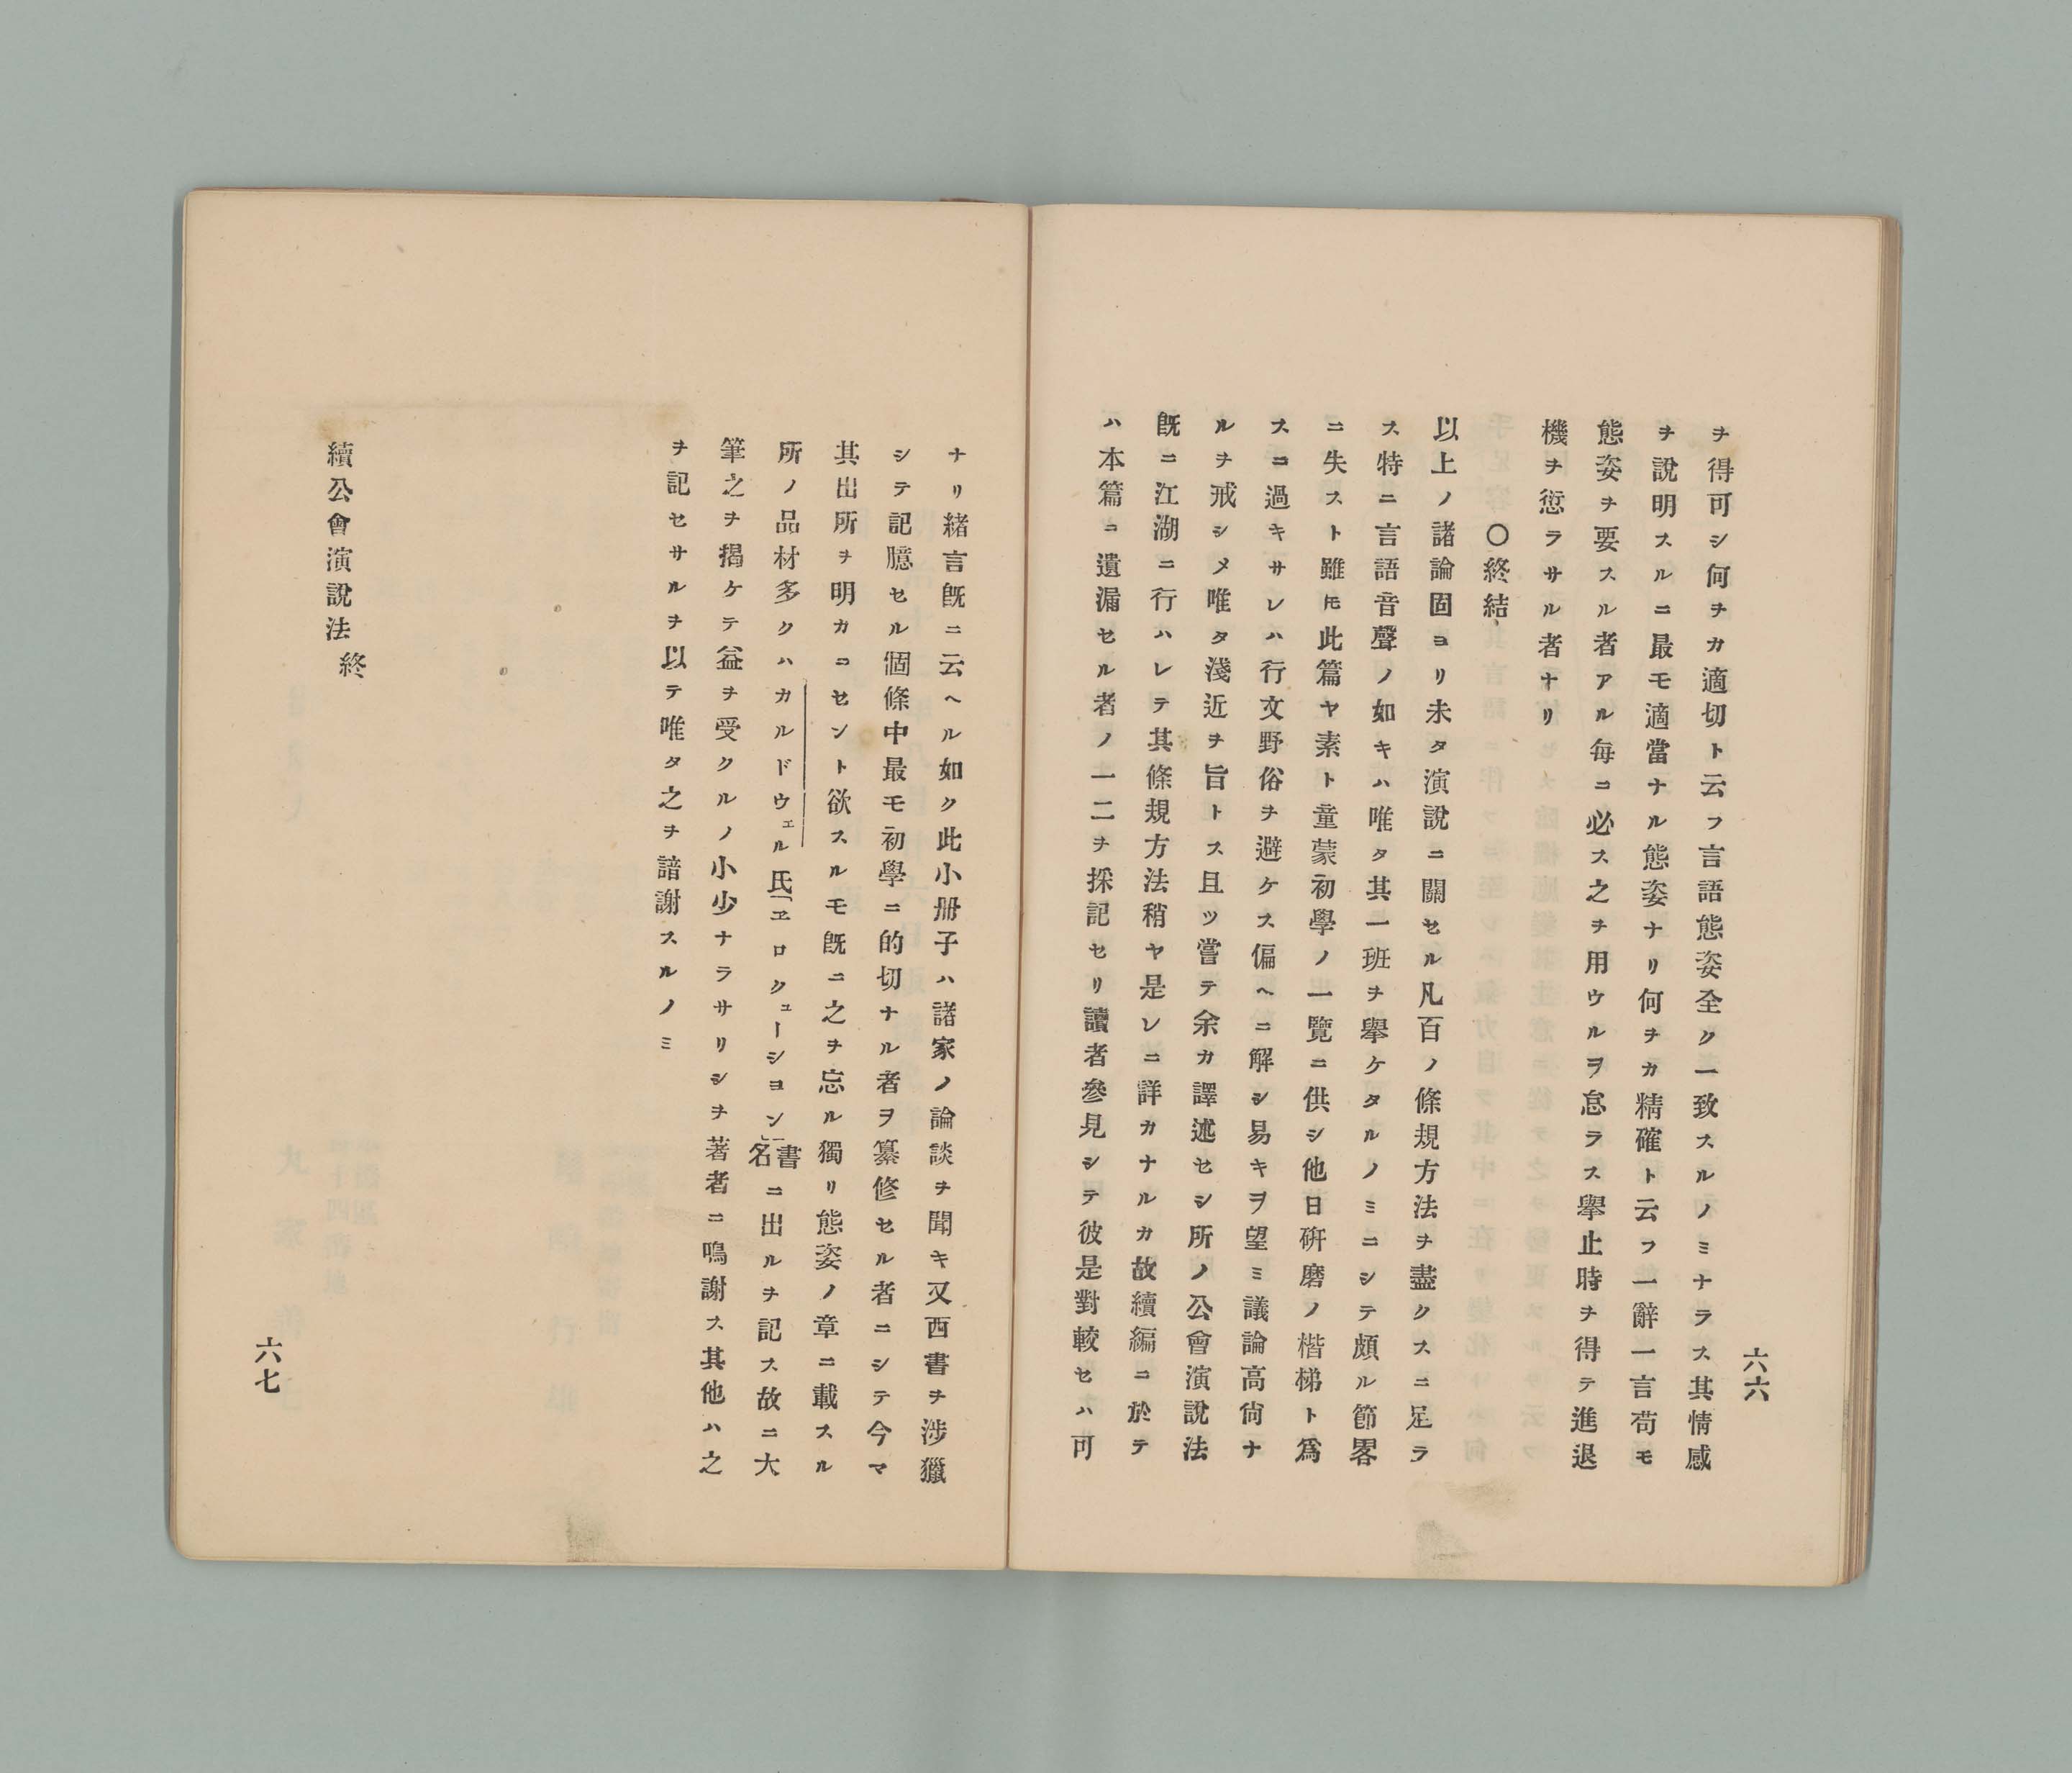 六六
ヲ得可シ何ヲカ適切ト云フ言語態姿全ク一致スルノミナラス其情感
ヲ說明スルニ最モ適當ナル態姿ナリ何ヲカ精確ト云フ一辭一言苟モ
態姿ヲ要スル者アル每ニ必ス之ヲ用ウルヲ怠ラス擧止時ヲ得テ進退
機ヲ愆ラサル者ナリ
〇終結、
以上ノ諸論固ヨリ未タ演說ニ關セル凡百ノ條規方法ヲ盡クスニ足ラ
ス特ニ言語音聲ノ如キハ唯タ其一班ヲ擧ケタルノミニシテ頗ル節畧
ニ失スト雖𪜈此篇ヤ素ト童蒙初學ノ一覽ニ供シ他日硏磨ノ楷梯ト爲
スニ過キサレハ行文野俗ヲ避ケス偏ヘニ解シ易キヲ望ミ議論高尙ナ
ルヲ戒シメ唯タ淺近ヲ旨トス且ツ嘗テ余カ譯述セシ所ノ公會演說法
旣ニ江湖ニ行ハレテ其條規方法稍ヤ是レニ詳カナルカ故續編ニ於テ
ハ本篇ニ遺漏セル者ノ一二ヲ採記セリ讀者參見シテ彼是對較セハ可
ナリ緖言旣ニ云ヘル如ク此小册子ハ諸家ノ論談ヲ聞キ又西書ヲ涉獵
シテ記臆セル個條中最モ初學ニ的切ナル者ヲ纂修セル者ニシテ今マ
其出所ヲ明カニセント欲スルモ旣ニ之ヲ忘ル獨リ態姿ノ章ニ載スル
所ノ品材多クハカルドウェル氏「ヱロクューシヨン」書名ニ出ルヲ記ス故ニ大
筆之ヲ揭ケテ益ヲ受クルノ小少ナラサリシヲ著者ニ鳴謝ス其他ハ之
ヲ記セサルヲ以テ唯タ之ヲ諳謝スルノミ
續公會演說法終
六七